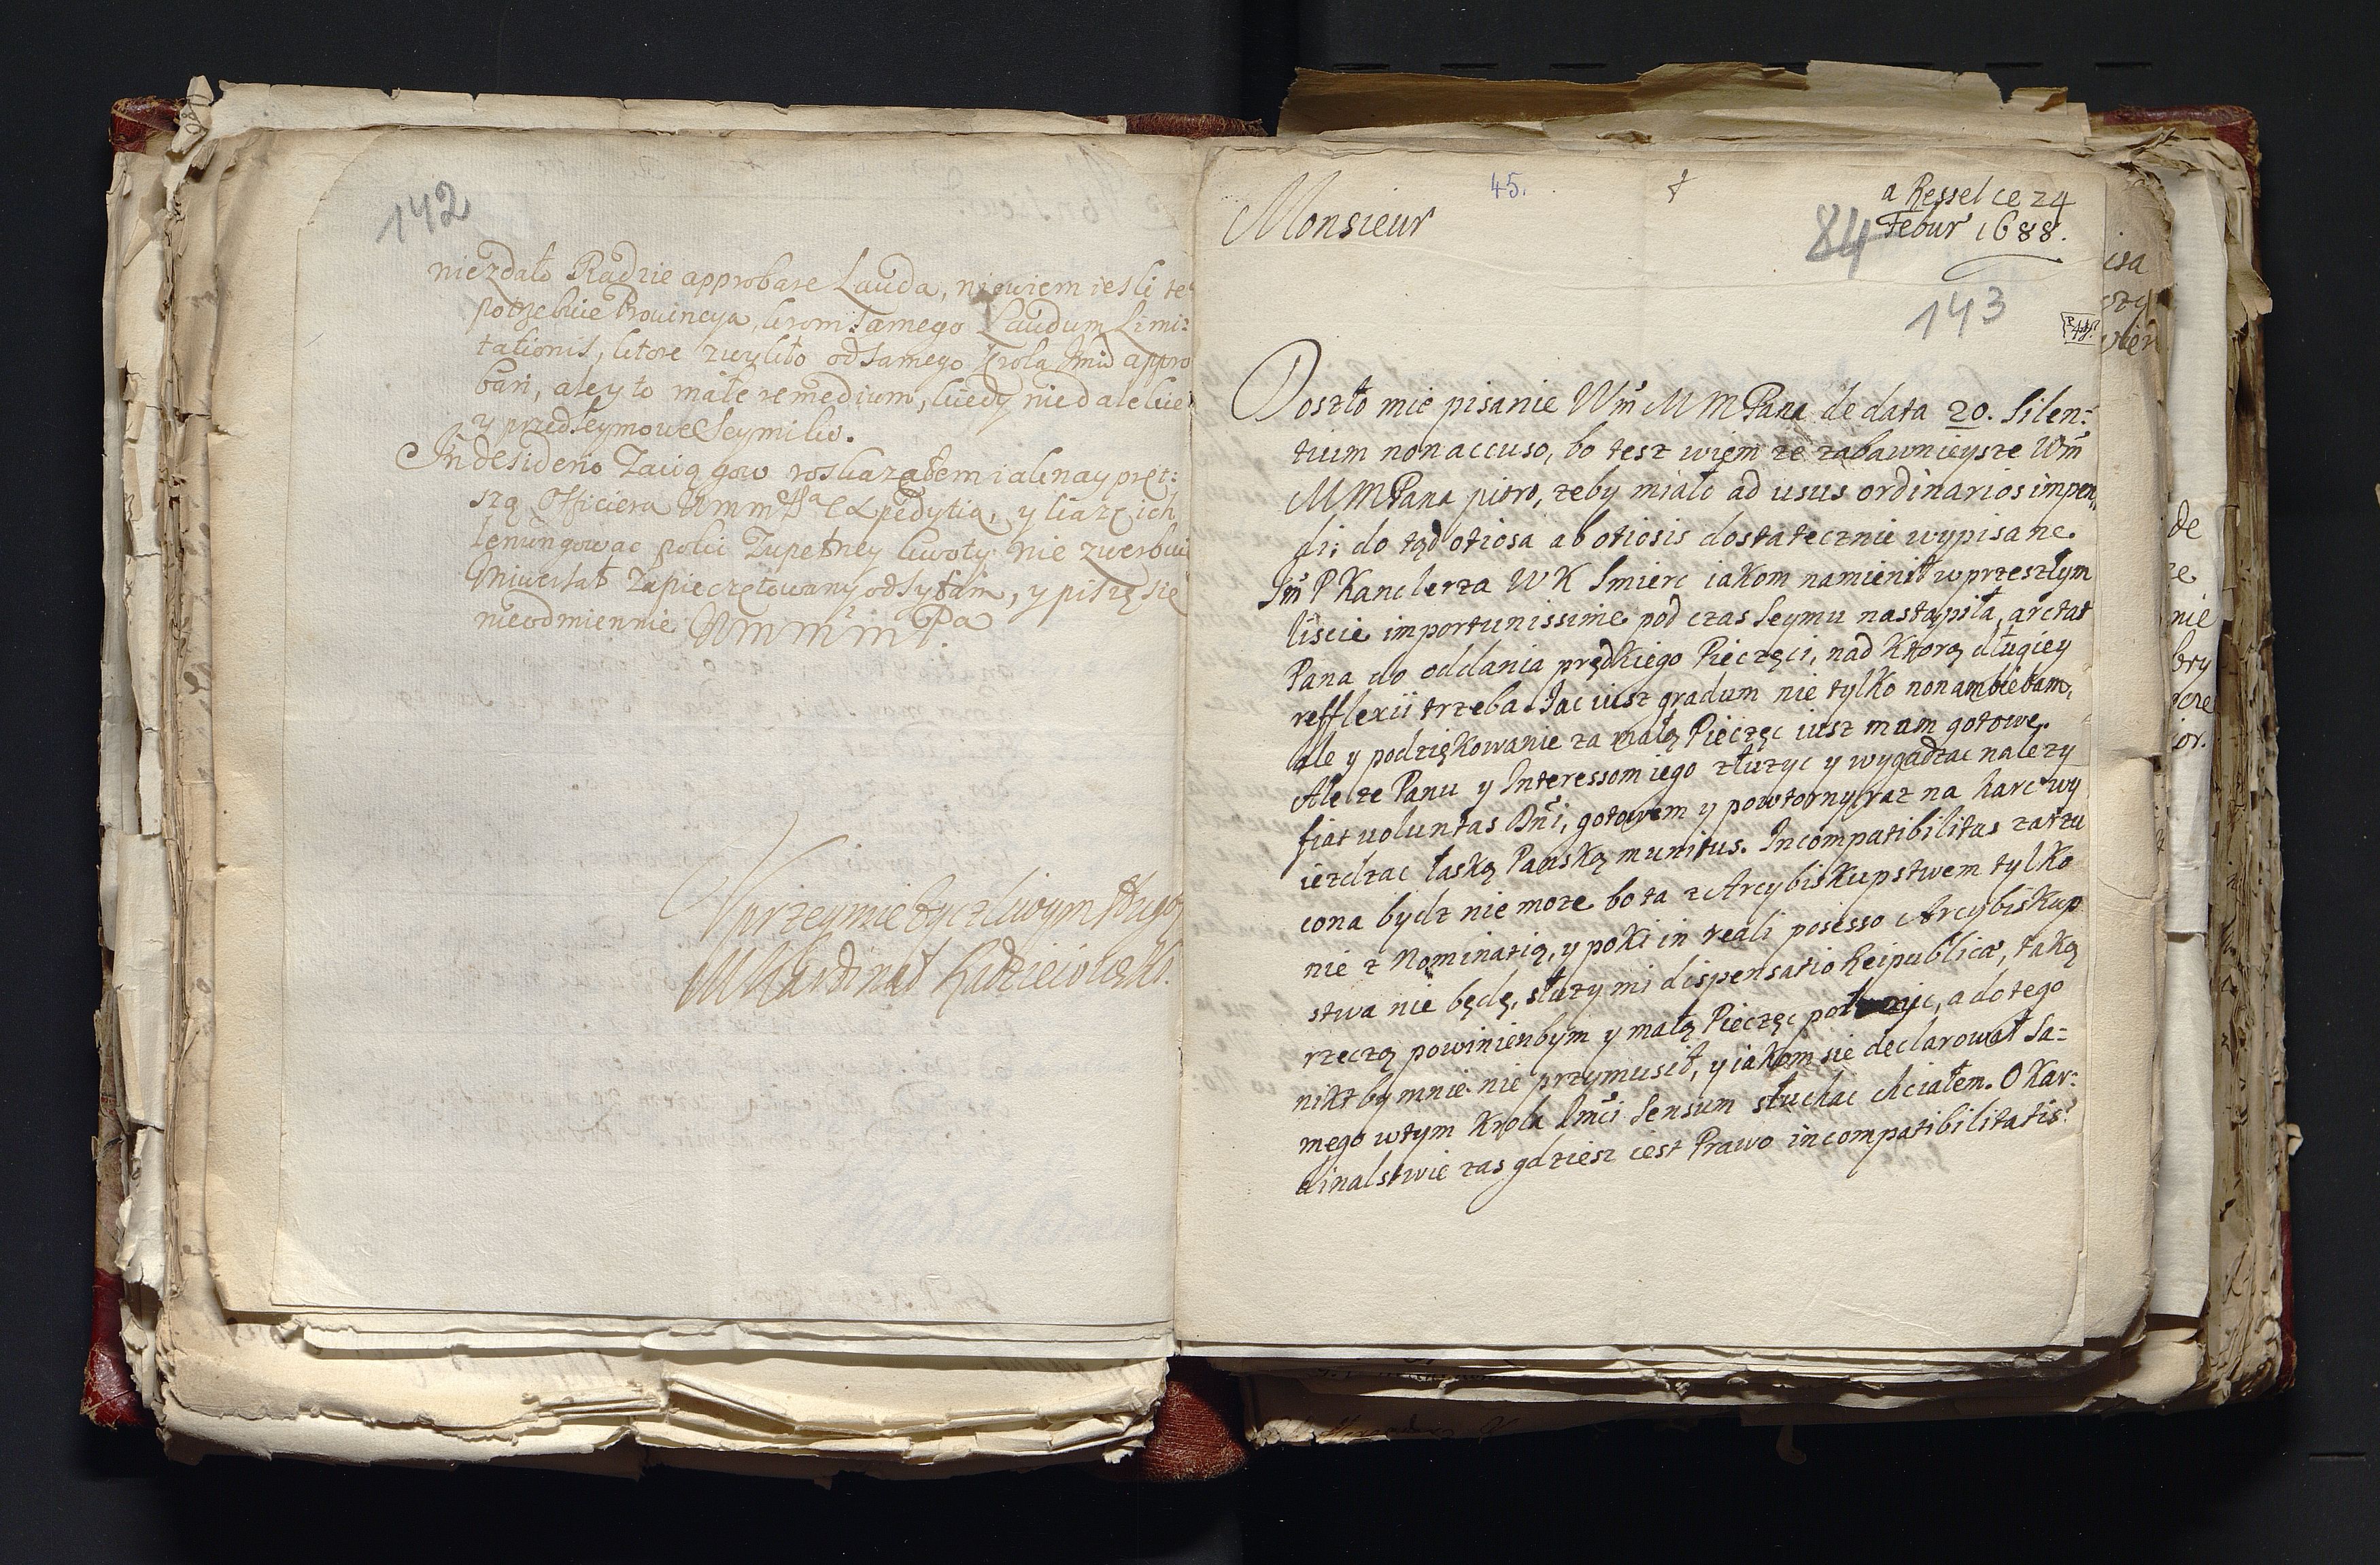 142
niezdało Radzie approbare Lauda, niewiem iesli te
potrzebuie Prowincya, krom samego Laudum Limi:
tationis, ktore zwykło od samego Krola Jmci appro
bari, ale y to małe remedium, kiedy niedalekie
y przedseymowe Seymiki.
In desiderio Zaciągow roskazałem iak naypręt:
szą Officiera WmmPa expedytią, y każę ich
lenungowac poki zupełney kwoty nie zwerbuie
Vniwersał zapieczętowany odsyłam, y piszę się
nieodmiennie Wmmm Pa
Vprzeymie życzliwym sługą
M Kardinał Radzieiowski.
Monsieur
45.
a Ressel ce 24
Febur 1688.
84
143
Doszło mie pisanie Wm M M Pana de data 20. Silen:
tium non accuso, bo tesz wiem ze zabawnieysze Wm
M M Pana pioro, zeby miało ad usus ordinarios impen
di; do tąd otiosa ab otiosis dostatecznie wypisane.
Jm P Kanclerza W K Smierc iakom namienił w przeszłym
liscie importunissime pod czas Seymu nastąpiła, arctat
Pana do oddania prędkiego Pieczęci, nad Ktorą długiey
refflexii trzeba. Jac iusz gradum nie tylko non ambiebam,
ale y podziękowanie za małą Pieczęc iusz mam gotowe.
Ale ze Panu y Interessom iego złuzyc y wygadzac nalezy
fiat voluntas Dni, gotowem y powtorny raz na harc wy
iezdzac łaską Panską munitus. Incompatibilitas zarzu
cona bydz nie moze bo ta z Arcybiskupstwem tylko
nie z Nominatią, y poki in reali posesso Arcybiskup
stwa nie będę, służy mi dispensatio Reipublicæ, taką
rzeczą powinienbym y małą Pieczęc, a do tego
nikt by mnie nie przymusił, y iakom sie declarował Sa:
mego w tym Krola Jmci Sensum słuchac chciałem. O Kar:
dinalstwie zas gdziesz iest Prawo incompatibilitatis?